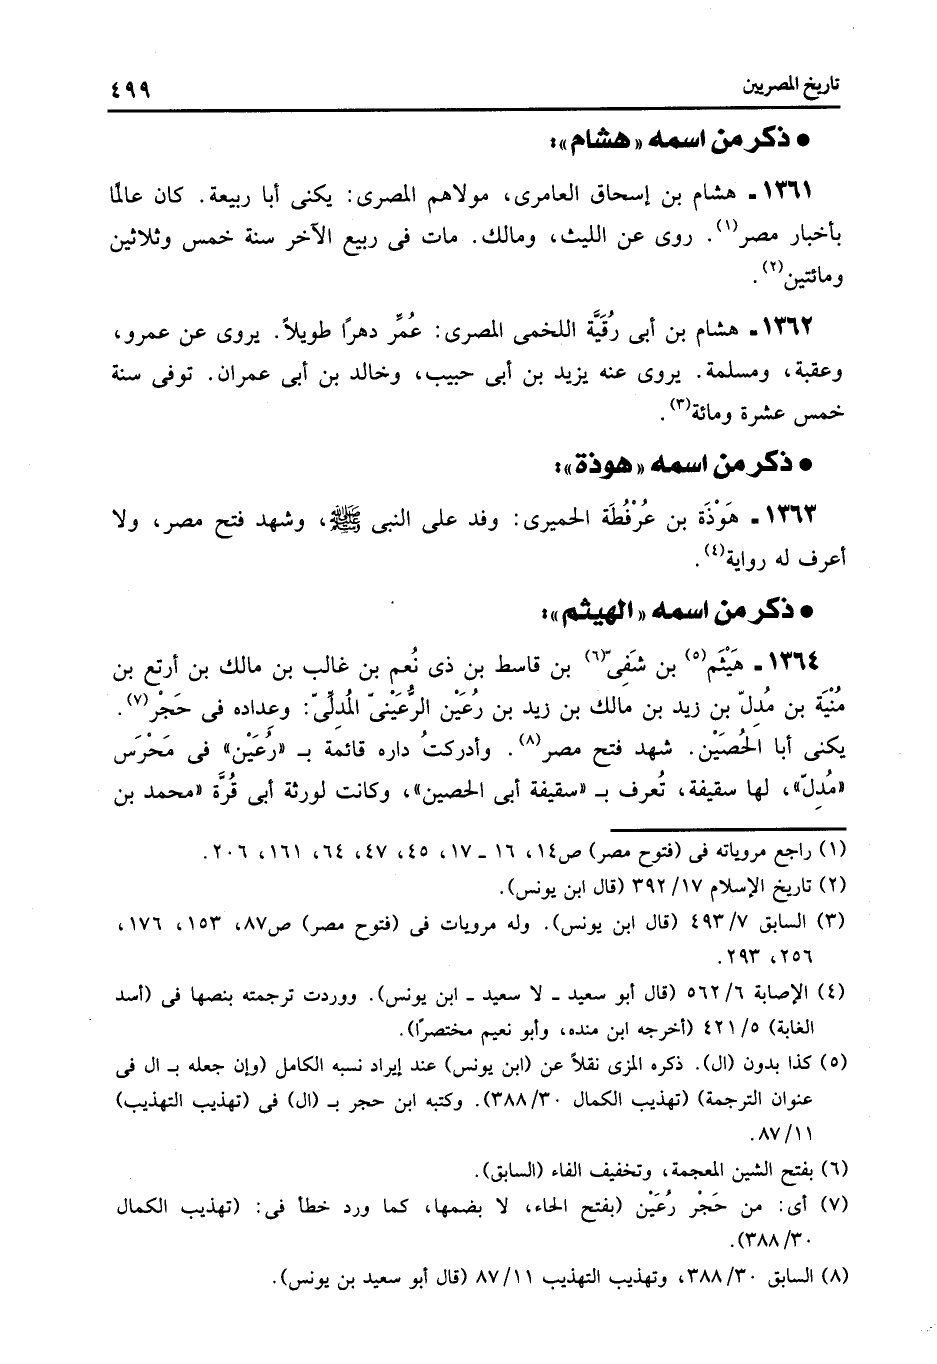 تاريخ المصريين ٤٩٩
● ذكر من اسمه «هشام»:
١٣٦١ـ هشام بن إسحاق العامرى، مولاهم المصرى: يكنى أبا ربيعة. كان عالمًا
بأخبار مصر(١). روى عن الليث، ومالك. مات فى ربيع الآخر سنة خمس وثلاثين
ومائتين(٢).
١٣٦٢ـ هشام بن أبى رُقَيَّة اللخمى المصرى: عُمِّر دهرًا طويلاً. يروى عن عمرو،
وعقبة، ومسلمة. يروى عنه يزيد بن أبى حبيب، وخالد بن أبى عمران. توفى سنة
خمس عشرة ومائة(٣).
● ذكر من اسمه «هوذة»:
١٣٦٣ـ هَوْذَة بن عُرْفُطَة الحميرى: وفد على النبى ﷺ، وشهد فتح مصر، ولا
أعرف له رواية(٤).
● ذكر من اسمه «الهيثم»:
١٣٦٤ـ هَيْثَم(٥) بن شَفِىّ(٦) بن قاسط بن ذى نُعم بن غالب بن مالك بن أرتع بن
مُنْيَة بن مُدِلّ بن زيد بن مالك بن زيد بن رُعَيْن الرُّعَيْنىّ المُدِلِّىّ: وعداده فى حَجْر(٧).
يكنى أبا الحُصَيْن. شهد فتح مصر(٨). وأدركتُ داره قائمة بـ «رُعَيْن» فى مَحْرَس
«مُدِلّ»، لها سقيفة، تُعرف بـ «سقيفة أبى الحصين»، وكانت لورثة أبى قُرَّة «محمد بن
(١) راجع مروياته فى (فتوح مصر) ص١٤، ١٦ ـ ١٧، ٤٥، ٤٧، ٦٤، ١٦١، ٢٠٦.
(٢) تاريخ الإسلام ١٧/ ٣٩٢ (قال ابن يونس).
(٣) السابق ٧/ ٤٩٣ (قال ابن يونس). وله مرويات فى (فتوح مصر) ص٨٧، ١٥٣، ١٧٦،
٢٥٦، ٢٩٣.
(٤) الإصابة ٦/ ٥٦٢ (قال أبو سعيد ـ لا سعيد ـ ابن يونس). ووردت ترجمته بنصها فى (أسد
الغابة) ٥/ ٤٢١ (أخرجه ابن منده، وأبو نعيم مختصرًا).
(٥) كذا بدون (ال). ذكره المزى نقلاً عن (ابن يونس) عند إيراد نسبه الكامل (وإن جعله بـ ال فى
عنوان الترجمة) (تهذيب الكمال ٣٠/ ٣٨٨). وكتبه ابن حجر بـ (ال) فى (تهذيب التهذيب)
١١/ ٨٧.
(٦) بفتح الشين المعجمة، وتخفيف الفاء (السابق).
(٧) أى: من حَجْر رُعَيْن (بفتح الحاء، لا بضمها، كما ورد خطأ فى: (تهذيب الكمال
٣٠/ ٣٨٨).
(٨) السابق ٣٠/ ٣٨٨، وتهذيب التهذيب ١١/ ٨٧ (قال أبو سعيد بن يونس).